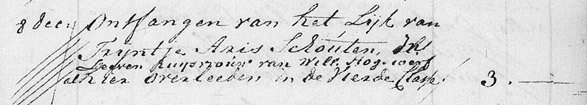 8 dec: Ontfangen van het Lijk van
Trijntje Aris Schouten, In
Leeven huysvrouw van Will: Hogewerf
alhier overleeden in de vierde Classe 3.—